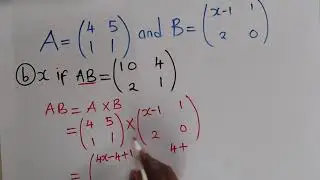 A = (4 5 1 1) and B = (x-1 1 2 0)
ⓑ x if AB = (10 4 2 1)
AB = A × B
= (4 5 1 1) × (x-1 1 2 0)
= (4x-4+1 4+